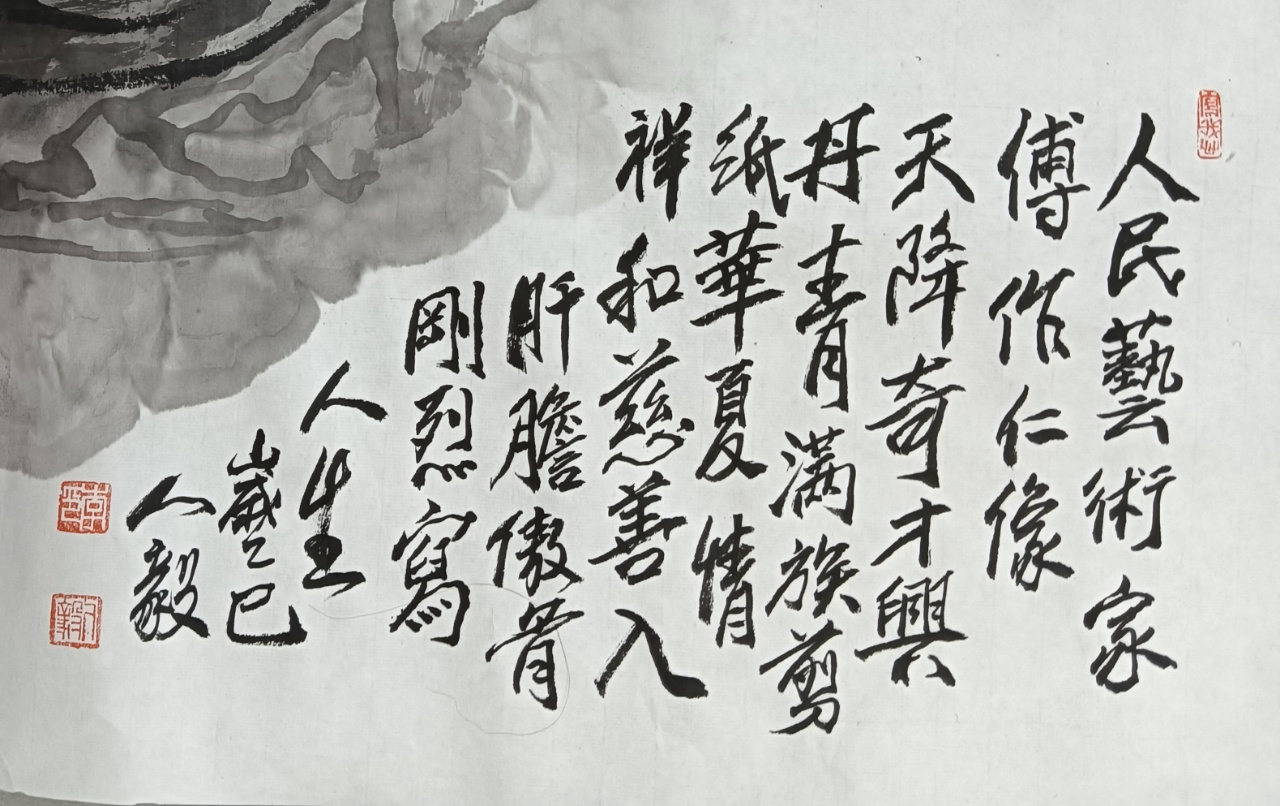 人民藝術家
傅作仁像
天降奇才興
丹青满族剪
纸華夏情
祥和慈善入
肝膽傲骨
剛烈寫
人生
歲乙巳
人毅